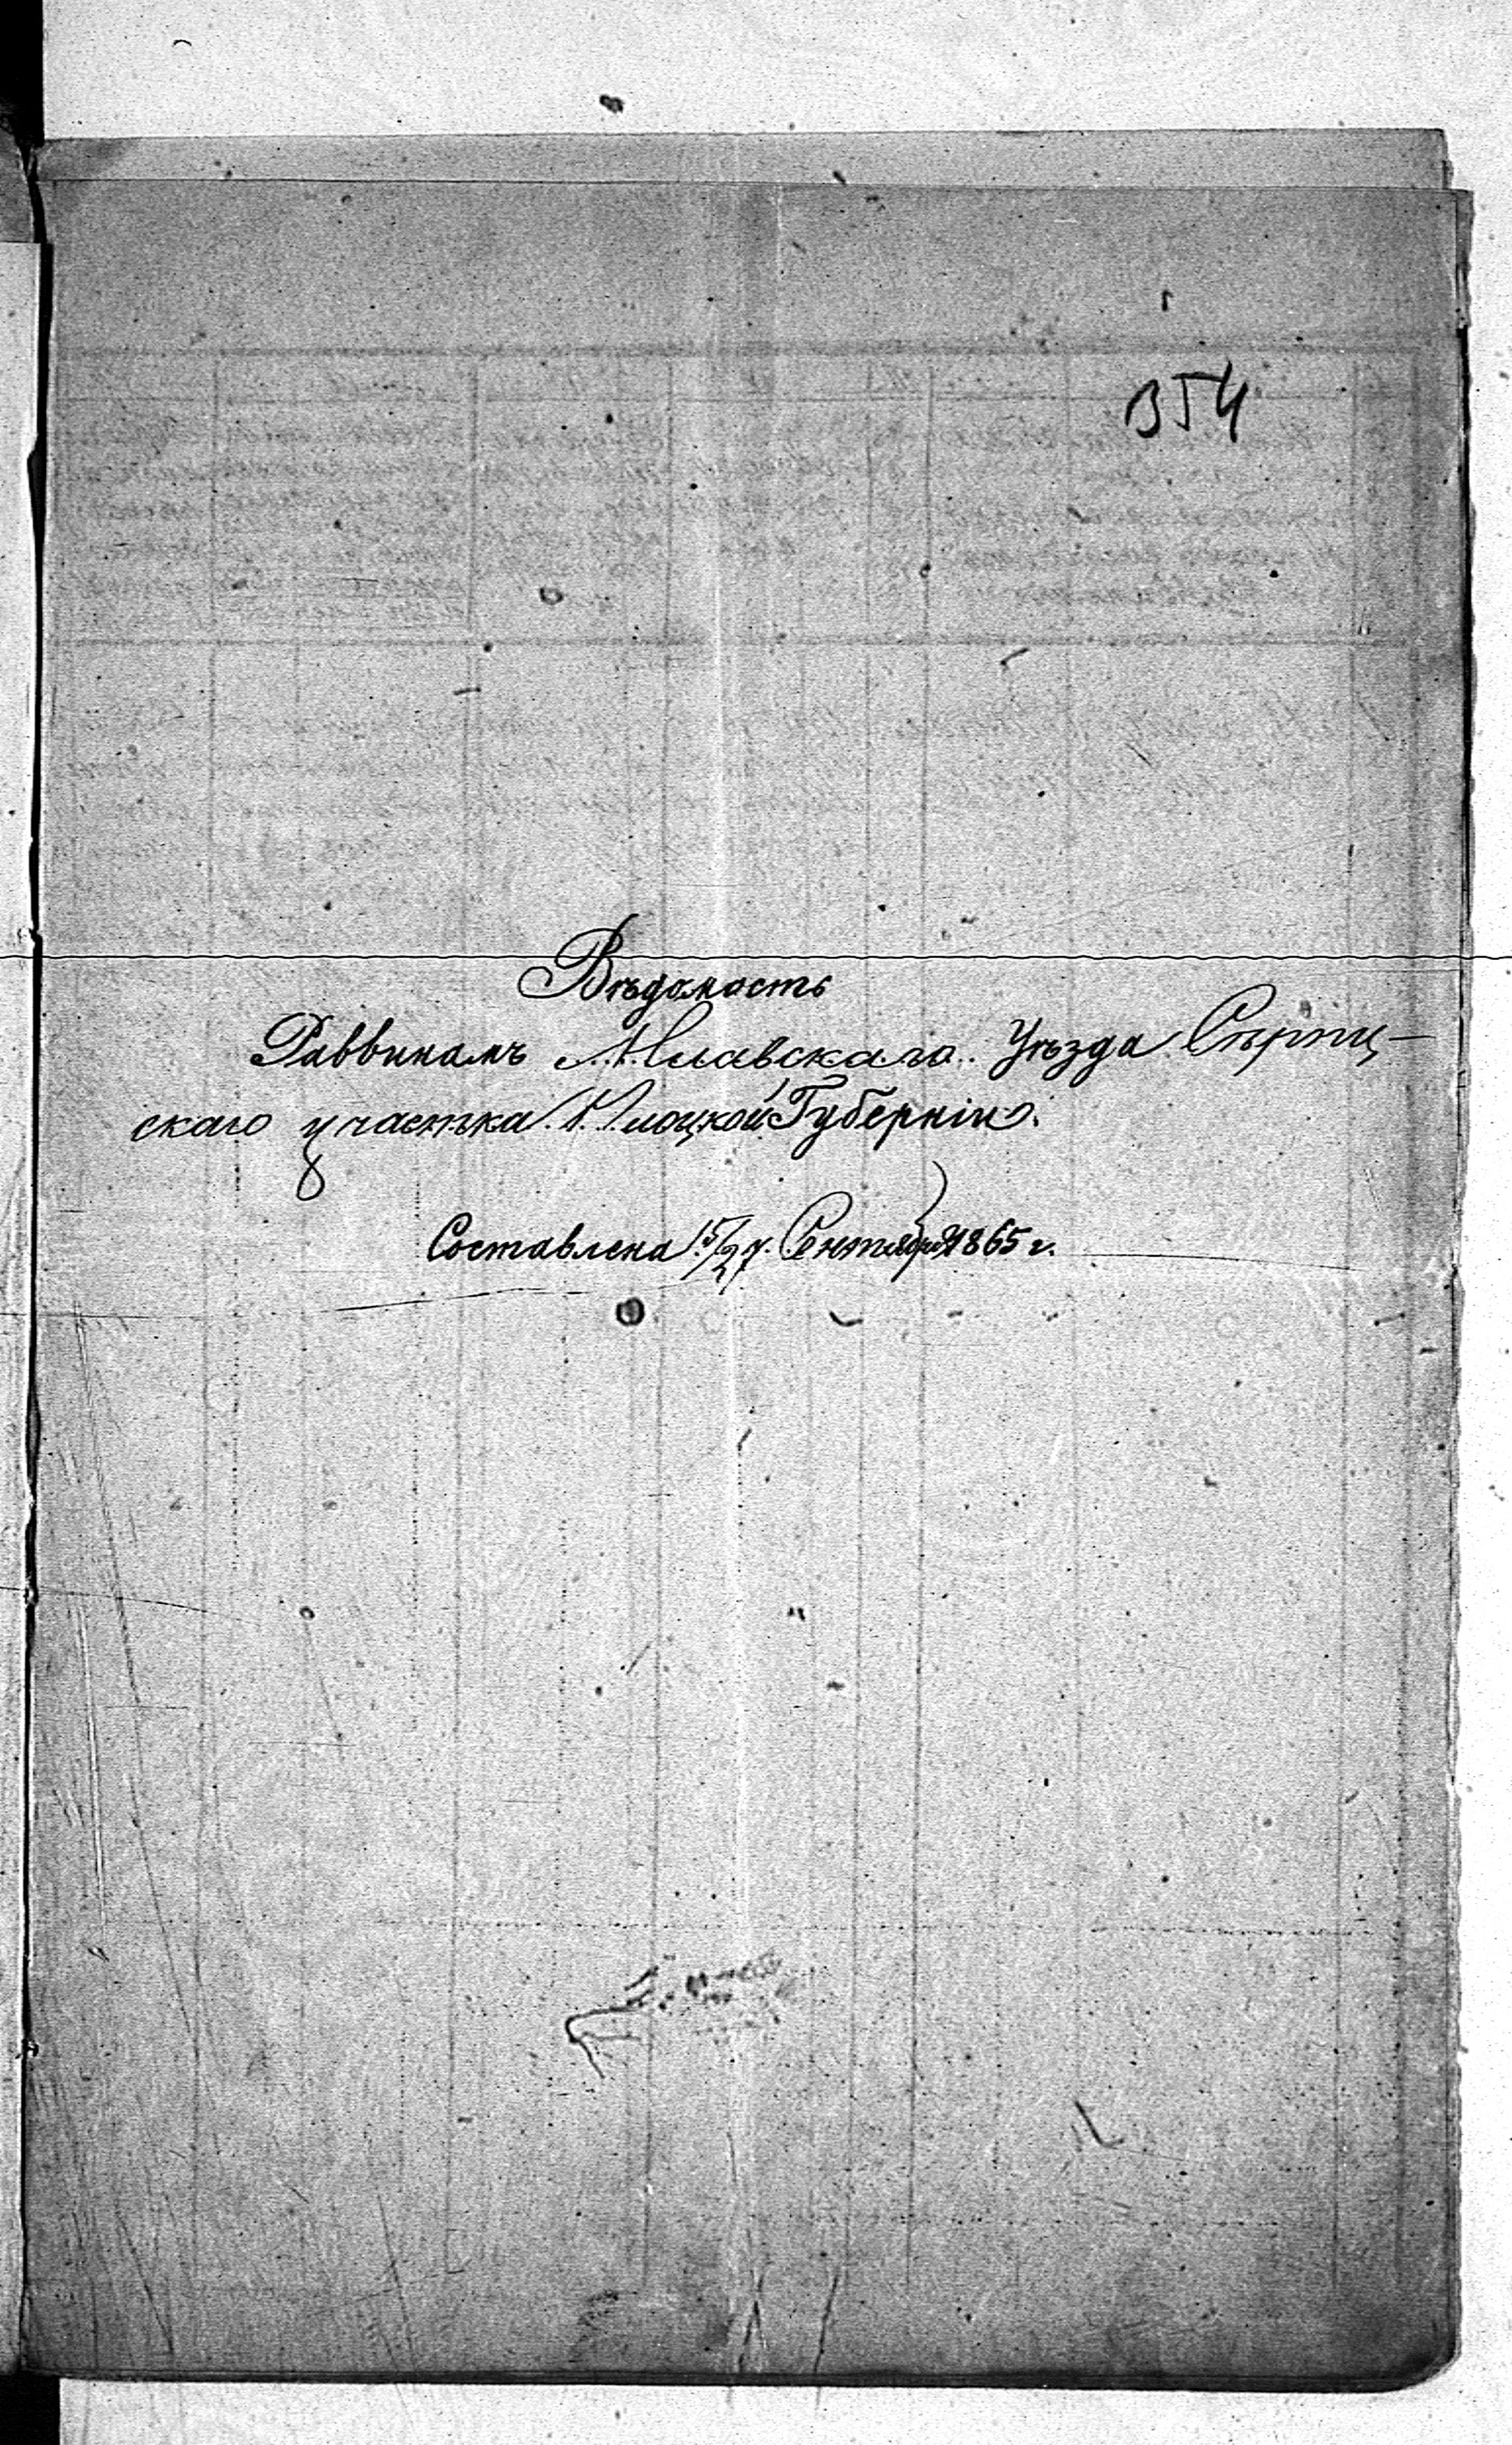 354
Вѣдомость
Раввинамъ Млавскаго Уѣзда Сѣрпц-
скаго участка Плоцкой Губерніи.
Составлена 15/27 Сентября 1865 г.